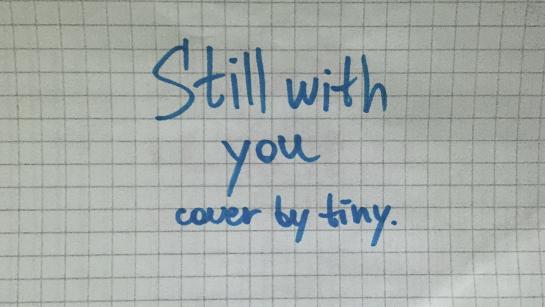 Still with
you
cover by tiny.